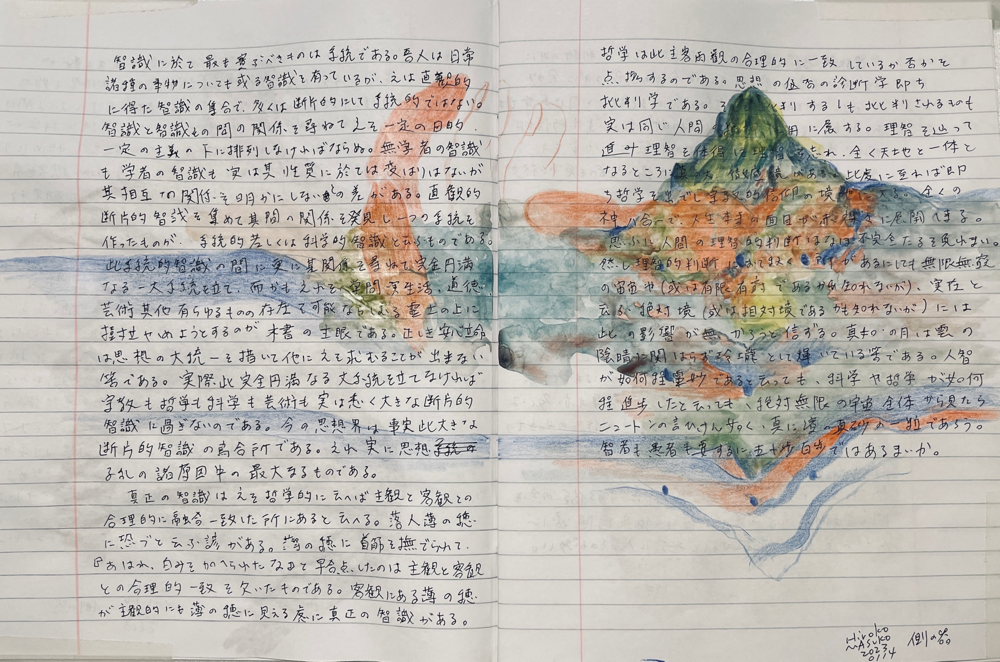 智識に於て最も尊ぶべきものは系統である。吾人は日常
諸種の事物についても或る智識を有っているが、之は直観的
に得た智識の集合で、多くは断片的にして系統的ではない。
智識と智識との間の関係を尋ねて之を一定の目的、
一定の主義の下に排列しなければならぬ。無学者の智識
も学者の智識も実は其性質に於ては変りはないが
其相互の関係を明かにしないの差がある。直観的
断片的智識を集めて其間の関係を発見し一つの系統を
作ったものが、系統的若しくは科学的智識と云ふものである。
此系統的智識の間に更に其関係を尋ねて完全円満
なる一大系統を立て、而かも之を
芸術其他有らゆるもの存在を可能ならしむる
ようとするのが本書の主眼である。正しき安心立命
は思想の大統一を措いて他に之を求むることが出来ない
筈である。実際此完全円満なる大系統を立てなければ
宗教も哲学も科学も芸術も実は悉く大きな断片的
智識に過ぎないのである。今の思想界は事実此大きな
断片的智識の烏合所である。之れ実に思想
子乱の諸原因中の最大なるものである。
真正の智識は之を哲学的に云へば主観と客観との
合理的に融合一致した所にあると云へる。落人薄の穂
に恐づと云ふ諺がある。薄の穂に首筋を撫でられて、
『あはれ、
との合理的一致を欠いたものである。客観にある薄の穂
が主観的にも薄の穂に見える処に真正の智識がある。
哲学は此主客両観の合理的に一致しているか否かを
点検するのである。思想の健否の診断学即ち
批判学である。するも批判されるものも
実は同じ人間に属する。理智を辿って
進み理智を忘れ、全く天地と一体と
なるところに此処に至れば即
ち哲学を
神人合一で人生本来の面目が展開しきる。
思ふに人間の理智的判断はなほ不完全たるを免れまい。
然し理智的判断があるにしても無限無窮
の宙宇や(或は有限有窮であるかも知れないが)、実在と
云ふ絶対境(或は相対境であるかも知れない)には
此の影響が無からうと信ずる。真如の月は雲の
陰晴に関はらず玲瓏として輝いている筈である。人智
が如何程霊妙であると云っても、科学や哲学が如何
程進歩したと云っても、絶対無限の宇宙全体から見たら
ニュートンの言ひけん如く、真に濱の真砂の一粒であらう。
智者も愚者も要するに五十歩百歩ではあるまいか。
Hiroko
MASuko
2023
01.14